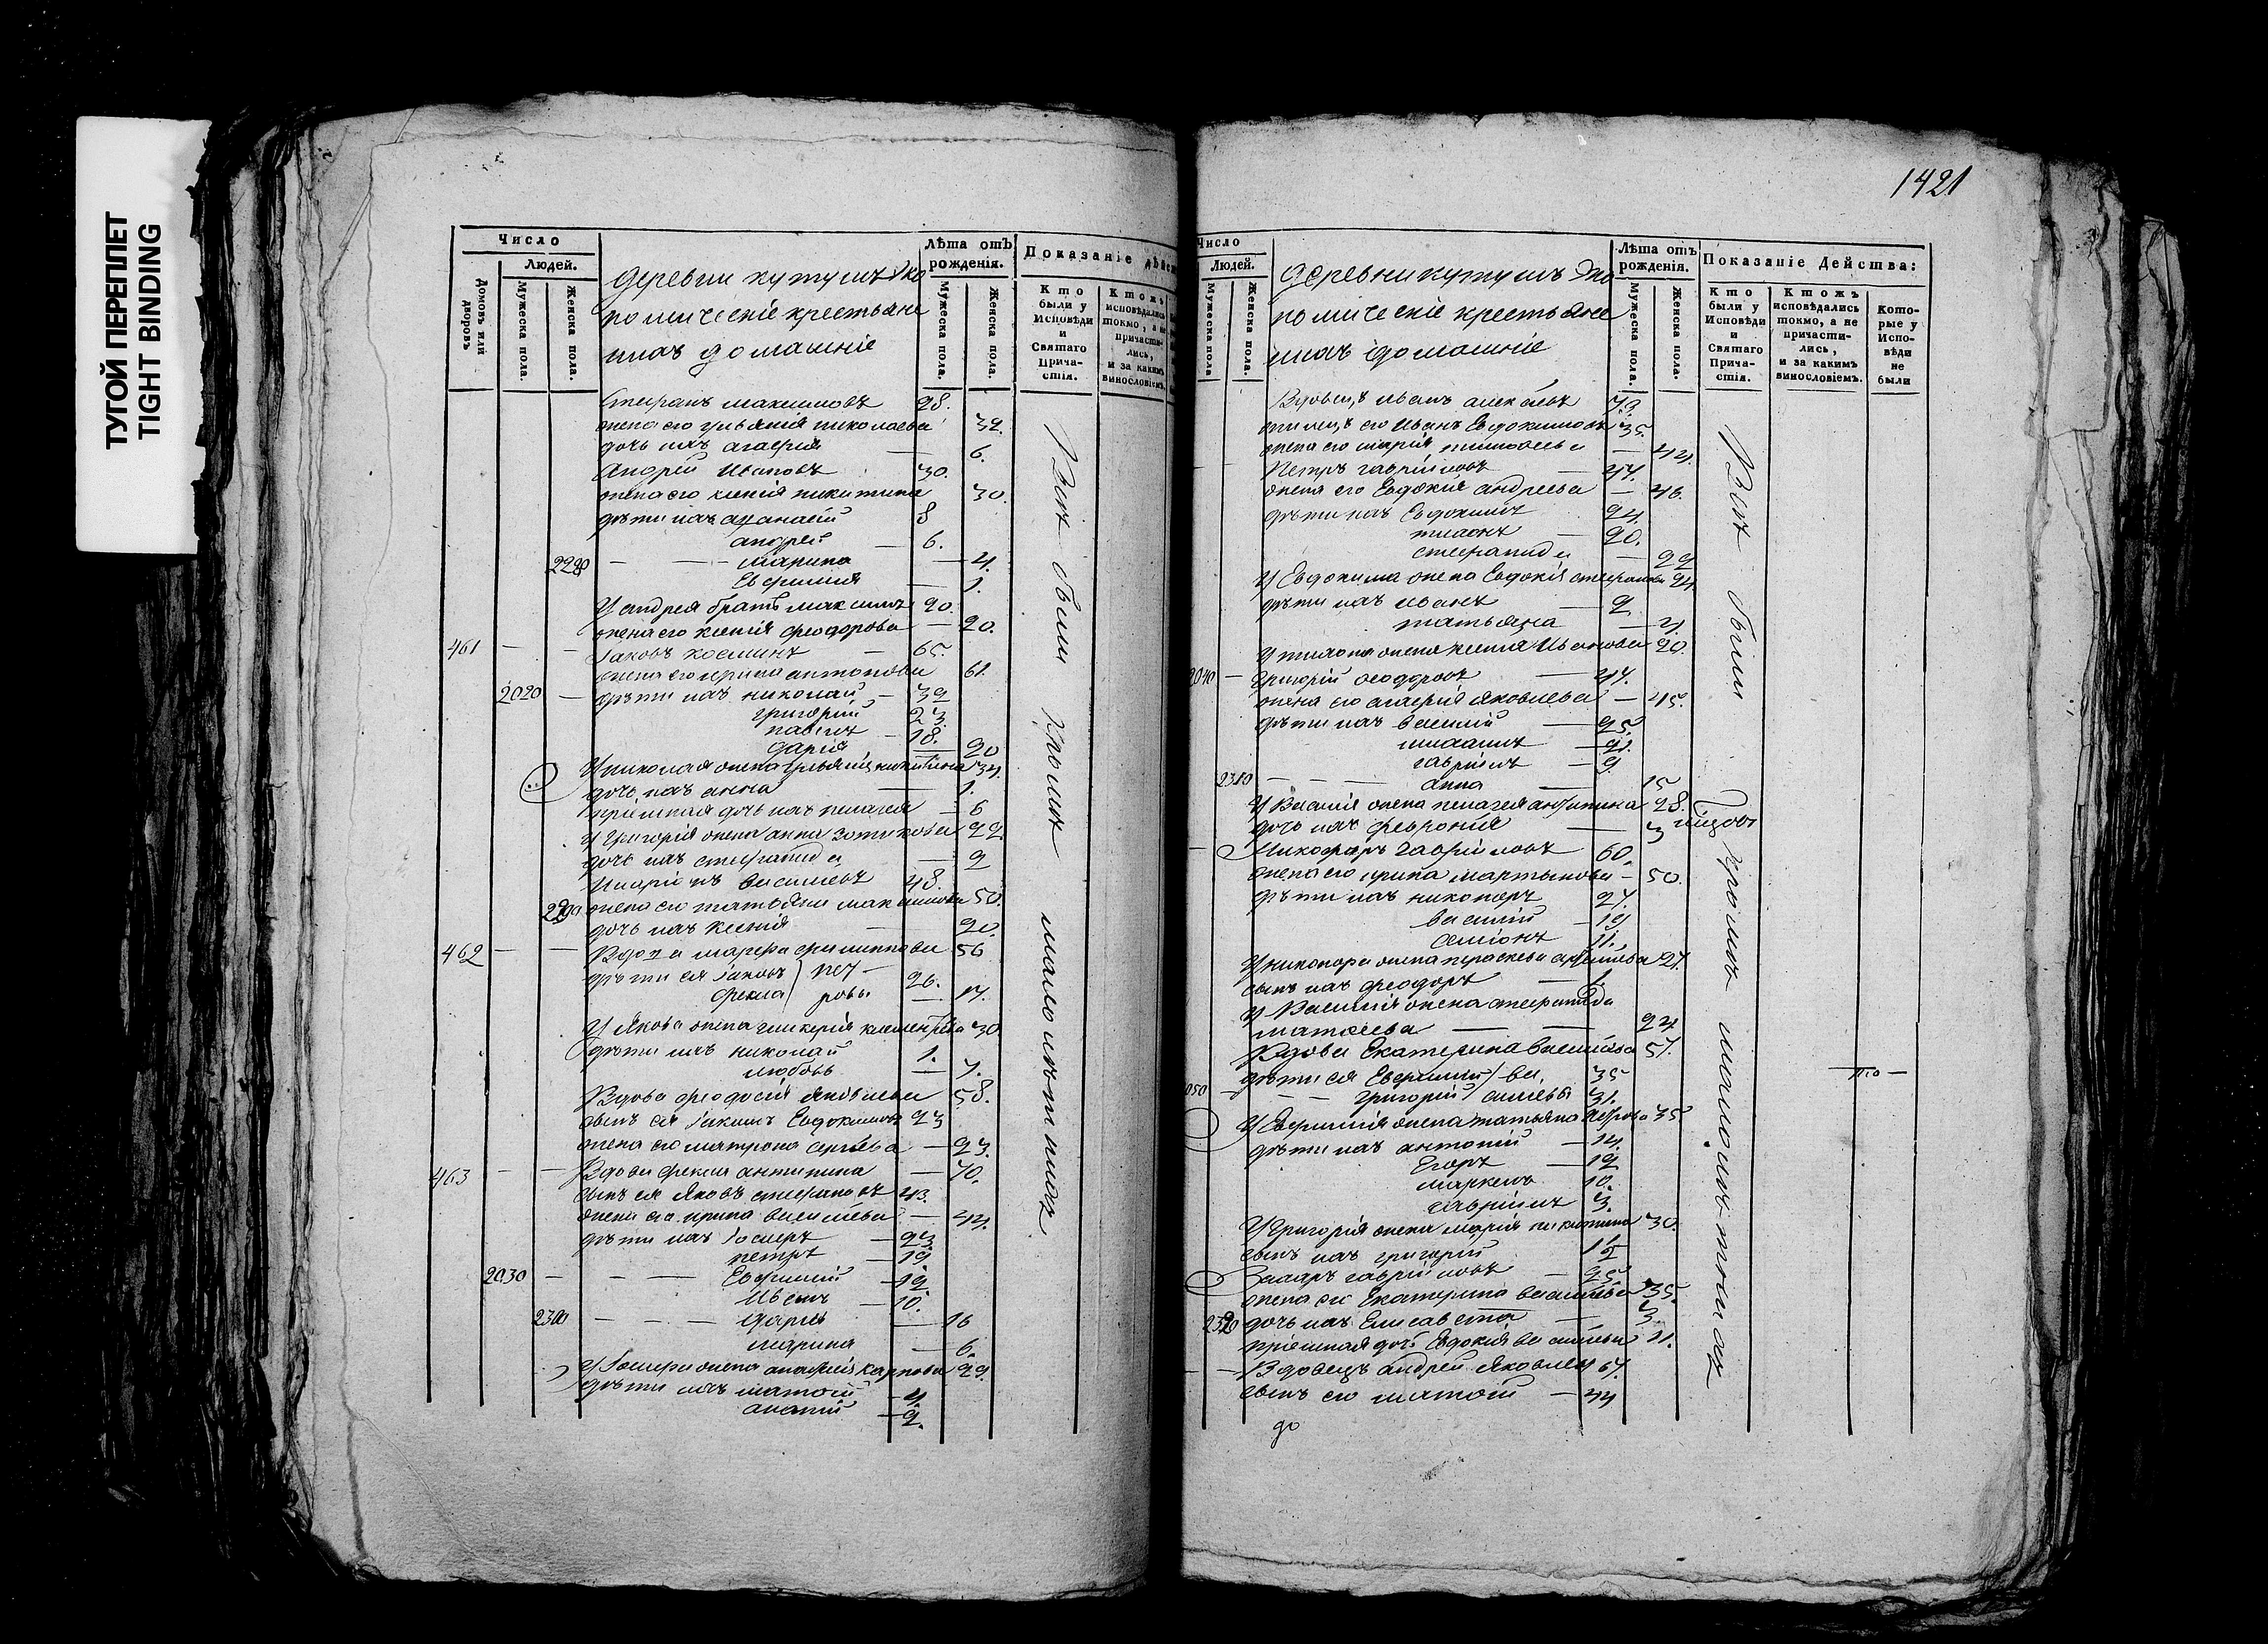 ТУГОЙ ПЕРЕПЛЕТ
TIGHT BINDING
Число
Людей.
Домовъ или дворовъ
Мужеска пола.
Женска пола.
деревни кутушъ Эко
номическіе крестьяне
ихъ домашніе
Лѣта отъ рожденія.
Мужеска пола.
Женска пола.
Показаніе дѣйс
Кто были у Исповѣди и Святаго Прича- стія.
Ктожъ исповѣдались токмо, а не причасти- лись, и за какимъ винословіемъ.
Стефанъ Максимовъ 28.
жена его Ульянія николаева 32.
дочь ихъ агафія 6.
Андрей Ивановъ 30.
жена его ксенія никитина 30.
дѣти ихъ афанасій 8
андрей 6.
2280 марина 4.
Евфимія 1.
У андрея братъ максимъ 20.
жена его ксенія феодорова 20.
461 Іаковъ козминъ 65.
жена его ирина антонова 61.
2020 дѣти ихъ николай 32
григорій 23.
павелъ 18.
дарія 20
У николая жена Ульянія никитина 34.
дочь ихъ анна 1.
пріемная дочь ихъ пелагея 6
У Григорія жена анна зотикова 22
дочь ихъ стефанида 2
Иларіонъ василевъ 48.
2290 жена его татьяна максимова 50.
дочь ихъ ксенія 20.
462 Вдова марфа филиппова 56
дѣти ея Іаковъ пет- 26.
Фекла ровы 17.
У Якова жена гликерія климентьева 30
дѣти ихъ николай 1.
любовь 7.
Вдова феодосія яковлева 58.
сынъ ея Іакимъ Евдокимовъ 23
жена его матрона сергѣева 23.
463 Вдова фекла антипина 70.
сынъ ея Яковъ стефановъ 43.
жена его ирина василева 44.
дѣти ихъ Іосифъ 23.
петръ 19
2030 Евфимій 12
Иванъ 10.
2300 дарья 16
марина 6.
У Іосифа жена анастасія карпова 22.
дѣти ихъ матѳей 4.
ананій 2.
Всѣ были кромѣ малолѣтнихъ
1421
Число
Людей.
Мужеска пола
Женска пола.
деревни кутушъ Эко
номическіе крестьяне
ихъ домашніе
Лѣта отъ рожденія.
Мужеска пола.
Женска пола.
Показаніе Дѣйства:
Кто были у Исповѣди и Святаго Прича- стія.
Ктожъ исповѣдались токмо, а не причасти- лись, и за какимъ винословіемъ.
Кото- рые у Испо- вѣди не были
Вдовецъ Иванъ алексѣевъ 72.
его Иванъ Евдокимовъ 35.
жена его марія 44.
Петръ гавріиловъ 47.
жена его Евдокія андреева 46.
дѣти ихъ Евдокимъ 24.
тихонъ 20.
стефанида 22
У Евдокима жена Евдокія стефанова 24.
дѣти ихъ Иванъ 2
татьяна 4.
У тихона жена ксенія Иванова 20.
2040 Григорій феодоровъ 47.
жена его агафія яковлева 45.
дѣти ихъ василій 25.
михаилъ 21.
гавріилъ 9.
2310 анна 15
У Василія жена пелагея антипина 28.
дочь ихъ февронія 3
Никифоръ Гавріиловъ 60.
жена его ирина мартынова 50.
дѣти ихъ никаноръ 27.
василій 19
Симіонъ 11.
У никанора жена параскева 27.
сынъ ихъ феодоръ 1.
У Василія жена стефанида
матѳеева 24
Вдова Екатерина василіева 57.
дѣти ея Евфимій ва 35
050 григорій силіевы 31.
У Евфимія жена татьяна петрова 35
дѣти ихъ антоній 14.
Егоръ 12
маркелъ 10.
гавріилъ 3.
У Григорія жена марія никитина 30.
сынъ ихъ григорій 1½
Захаръ гавріиловъ 25
жена его Екатерина василіева 35.
2320 дочь ихъ Елисавета 3.
пріемная дочь Евдокія василіева 11.
Вдовецъ андрей Яковлевъ 67.
сынъ его матѳей 44
до
Всѣ были кромѣ малолѣтнихъ